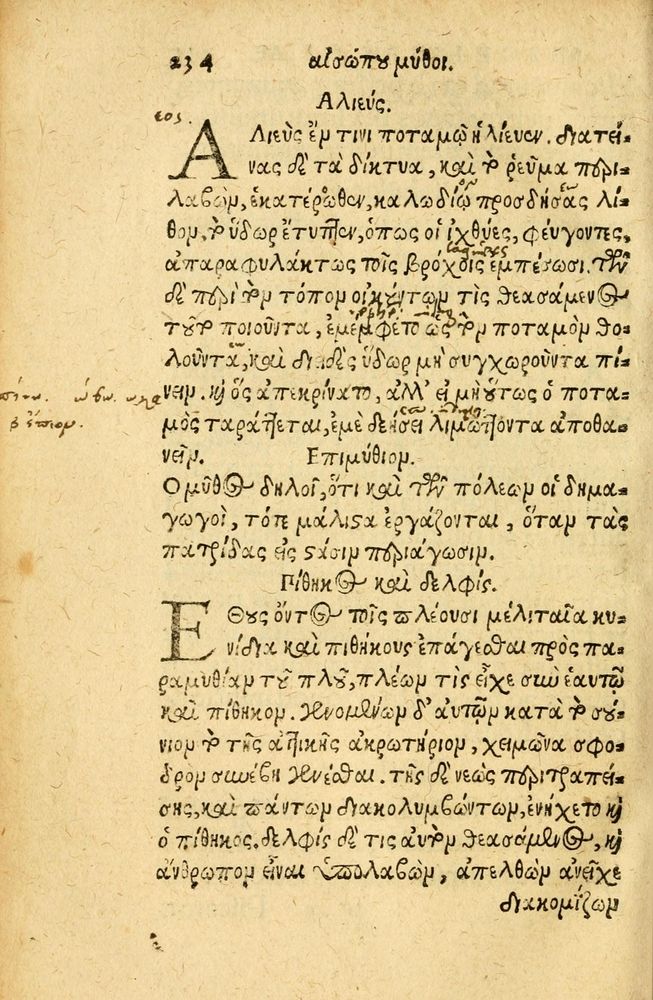 234 αἰσώπου μῦθοι.
Ἁλιεύς.
ἉΛιεὺς ἔν τινι ποταμῷ ἡλίευεν. διατεί-
νας δὲ τὰ δίκτυα, καὶ τὸ ῥεῦμα περι-
λαβὼν, ἑκατέρωθεν, καλωδίῳ προσδήσας λί-
θον, τὸ ὕδωρ ἔτυπτεν, ὅπως οἱ ἰχθύες, φεύγοντες,
ἀπαραφυλάκτως τοῖς βρόχοις ἐμπέσωσι. τῶν
δὲ περὶ τὸν τόπον οἰκούντων τὶς θεασάμενος
τοῦτο ποιοῦντα, ἐμέμφετο ὡς τὸν ποταμὸν θο-
λοῦντα, καὶ διειδὲς ὕδωρ μὴ συγχωροῦντα πί-
νειν. καὶ ὃς ἀπεκρίνατο, ἀλλ' εἰ μὴ οὕτως ὁ ποτα-
μὸς ταράττεται, ἐμὲ δεήσει λιμώττοντα ἀποθα-
νεῖν. Επιμύθιον.
Ὁ μῦθος δηλοῖ, ὅτι καὶ τῶν πόλεων οἱ δημα-
γωγοὶ, τότε μάλιστα ἐργάζονται, ὅταν τὰς
πατρίδας εἰς στάσιν περιάγωσιν.
Πίθηκος καὶ δελφίς.
ΕΘους ὄντος τοῖς πλέουσι μελιταῖα κυ-
νίδια καὶ πιθήκους ἐπάγεσθαι πρὸς πα-
ραμυθίαν τοῦ πλοῦ, πλέων τὶς εἶχε σὺν ἑαυτῷ
καὶ πίθηκον. γενομένων δ' αὐτῶν κατὰ τὸ σού-
νιον τὸ τῆς ἀττικῆς ἀκρωτήριον, χειμῶνα σφο-
δρὸν συνέβη γενέσθαι. τῆς δὲ νεὼς περιτραπεί-
σης, καὶ πάντων διακολυμβώντων, ἐνήχετο καὶ
ὁ πίθηκος. δελφὶς δέ τις αὐτὸν θεασάμενος, καὶ
ἄνθρωπον εἶναι ὑπολαβὼν, ἀπελθὼν ἀνεῖχε
διακομίζων